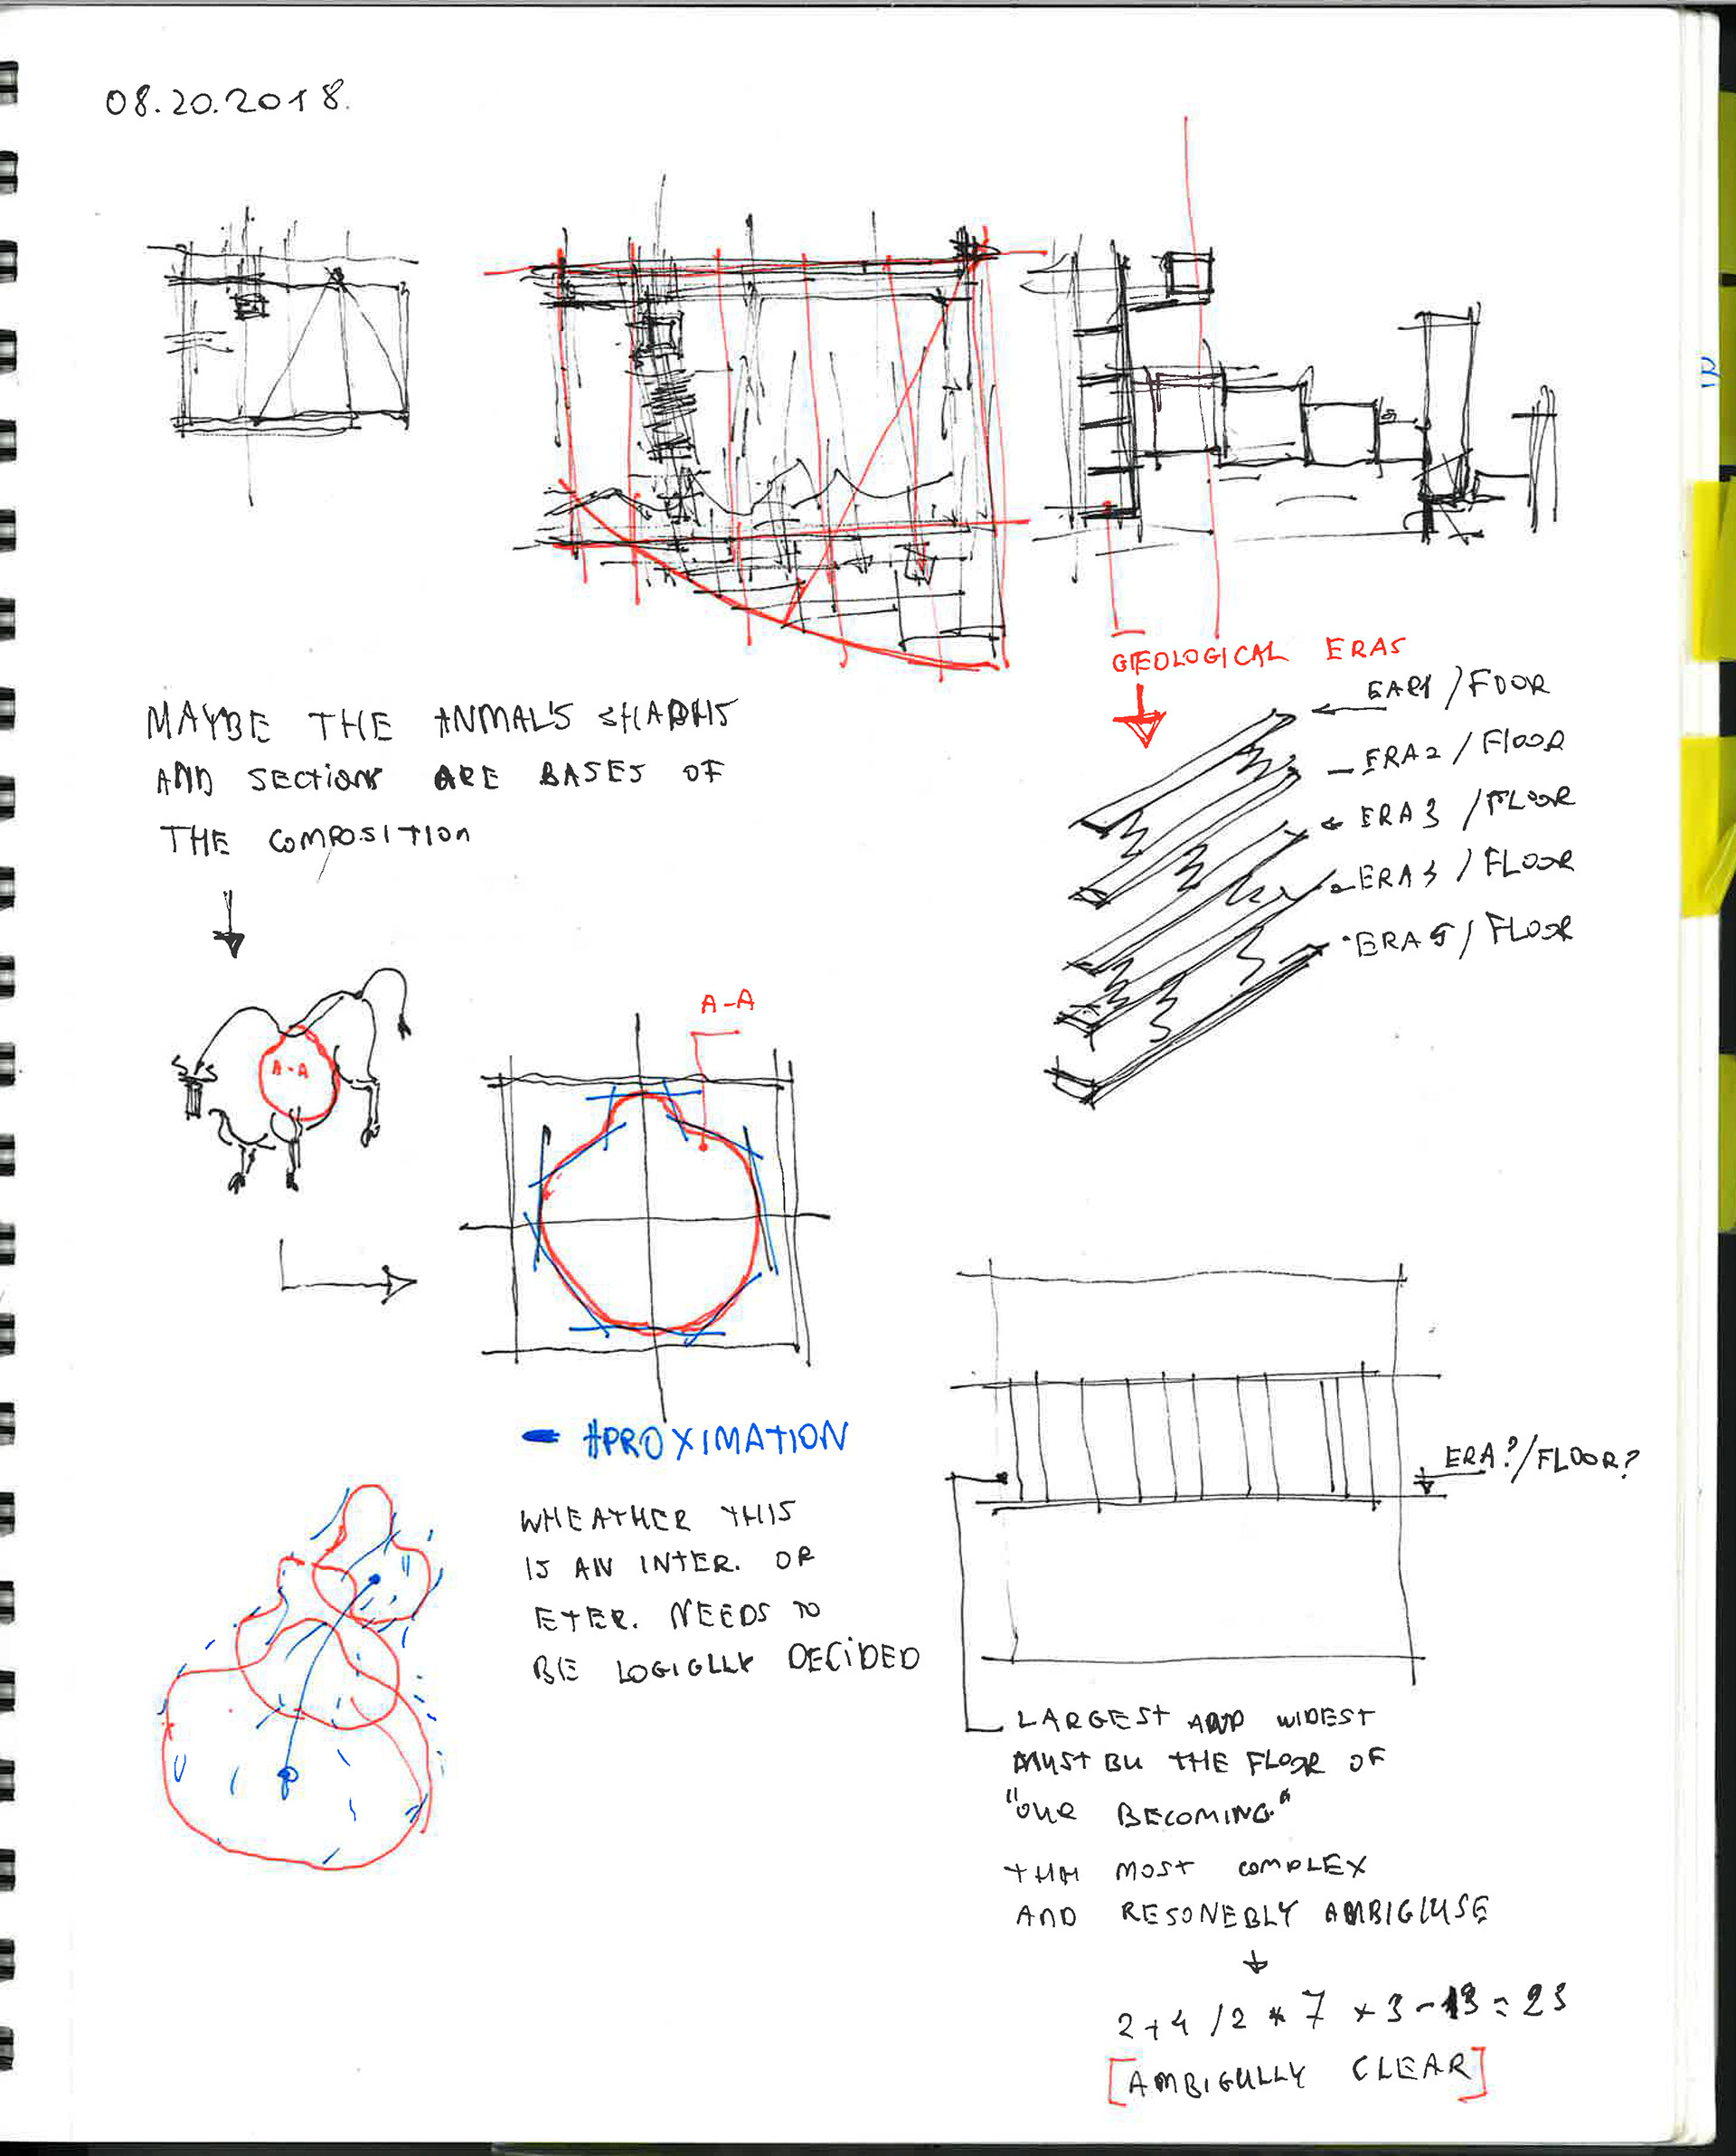 08.20.2018.
GEOLOGICAL ERAS
EAR1 / FOOR
ERA2 / FlOOR
ERA 3 / FLOOR
ERA 3 / FLOOR
ERA 5 / FLOOR
MAYBE THE ANMAL'S
AND SECTIONS ARE BASES OF
THE COMPOSITION
A-A
A-A
- APROXIMATION
WHEATHER THIS
IS AN INTER. OR
ETER. NEEDS TO
BE LOGIGLLY DECIDED
ERA?/FLOOR?
LARGEST AND WIDEST
MUST BU THE FLOOR OF
"OUR BECOMING"
THH MOST COMPLEX
AND RESONEBLY AMBIGIUSE
2+4 /2 * 7 × 3 - 13 = 23
[AMBIGULLY CLEAR]